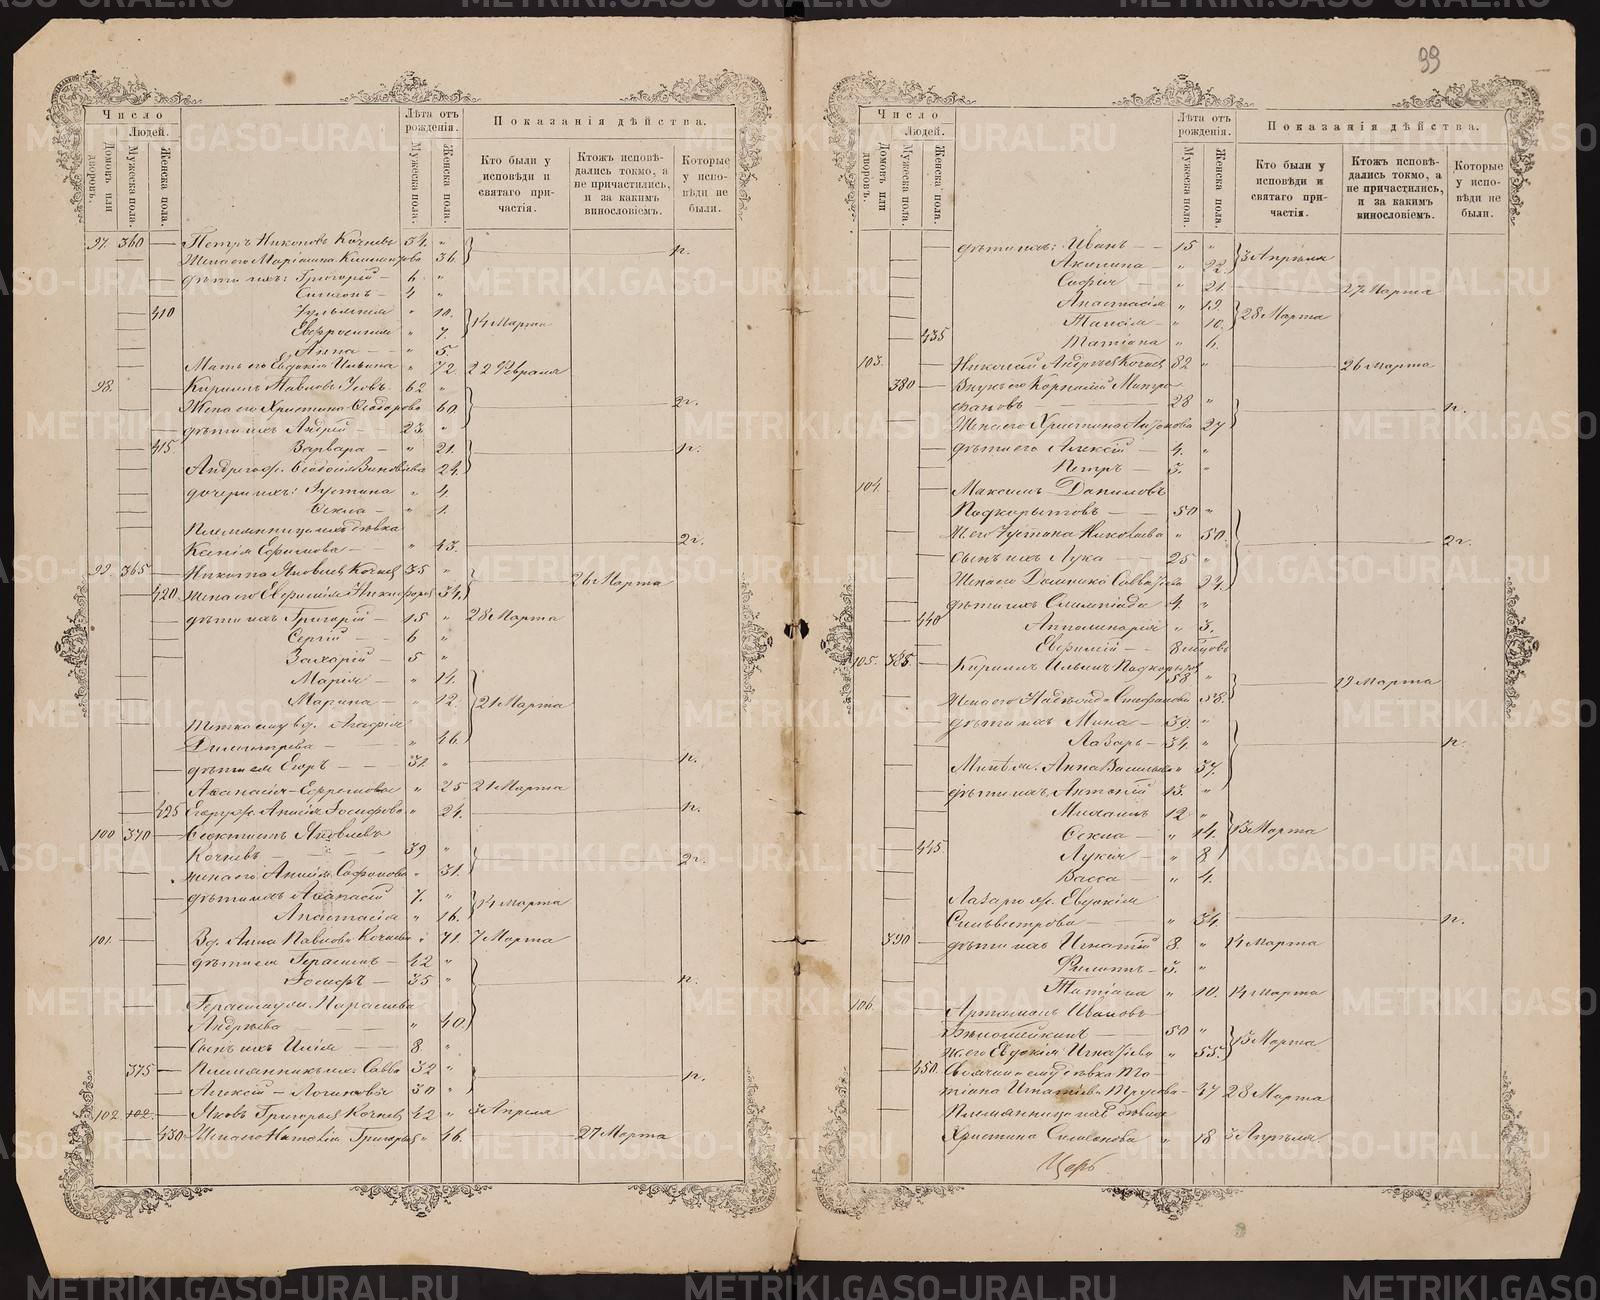 99
Число
Людей.
Домовъ или дворовъ.
Мужеска пола.
Женска пола.
Лѣта отъ рожденія.
Мужеска пола.
Женска пола.
Показанія дѣйства.
Кто были у исповѣди и святаго причастія.
Ктожъ исповѣдались токмо, а не причастились, и за какимъ винословіемъ.
Которые у исповѣди не были.
97. 360 — Петръ Никоновъ Кочневъ 54. "
Жена его Маріамна 36. п.
дѣти ихъ: Григорій — 6. "
Симеонъ — 4 "
410 " 10.
Евфросинія " 7. 14 Марта
Анна — " 5.
Мать его Евдокія Ильина " 72. 22 Февраля
98. — Кириллъ Павловъ 62 "
Жена его Христина Ѳеодорова 60. 2г.
дѣти ихъ Андрей — 23. "
415. Варвара — " 21. п.
Андрея ж. Ѳеодосія Зиновьева 24.
дочери ихъ: Густина " 4.
Ѳекла — " 1.
Племянница ихъ дѣвка
Ксенія Ефимова — " 43. 2г.
99. 365 — Никита Яковлевъ Кочневъ 35 "
420 Жена его Евфимія Никифорова 34. 26 Марта
дѣти ихъ Григорій — 15 " 28 Марта
Сергій — 6 "
Захарій — 5 "
Марія — " 14.
Марина — " 12. 21 Марта
Тетка ему вд. Агафія
Димитрева — " 46.
дѣти ея Егоръ — 31. " п.
Аѳанасія Ефремова " 25 21 Марта
425 Егору ж. Анисія Іосифова " 24. п.
100 370 — Ѳеоктистъ Яковлевъ
Кочневъ — 39 "
жена его Анисія Сафонова " 31. 2г.
дѣти ихъ Аѳанасій 7. "
Анастасія " 16. 14 Марта
101. — Вд. Анна Павлова Кочнева " 71. 7 Марта
дѣти ея Герасимъ — 42 "
Іосифъ — 35 " п.
Герасима ж. Параскева
Андреева — " 40.
Сынъ ихъ Илія — 8. "
375 — Племянники их. Савва 32 "
Алексій — Логиновы 30 " п.
102 102. — Яковъ Григорьевъ Кочневъ 42 " 3 Апреля
430 Жена его Наталія Григорьева " 46. 27 Марта
Число
Людей.
Домовъ или дворовъ.
Мужеска пола.
Женска пола.
Лѣта отъ рожденія.
Мужеска пола.
Женска пола.
Показанія дѣйства.
Кто были у исповѣди и святаго причастія.
Ктожъ исповѣдались токмо, а не причастились, и за какимъ винословіемъ.
Которые у исповѣди не были.
дѣти ихъ: Иванъ — 15 "
Акилина " 22. 3 Апрѣля
Софія " 21. 27 Марта
Анастасія " 19.
Таисія — " 10. 28 Марта
435 Татіана " 6.
103. — Николай Андреевъ Кочневъ 82 " 26 Марта
380 — Внукъ его Корнилій Митро
фановъ — 28 " п.
Жена его Христина Антонова 27
дѣти его Алексій — 4. "
Петръ — 3. "
104. — Максимъ Даниловъ
Подкорытовъ — 50 "
Ж. его Устина Николаева " 50. 2г.
Сынъ ихъ Лука — 25 "
Жена его Домника Савватіева 24.
дѣти ихъ Олимпіада 4. "
440 Апполинарія " 3.
Евфимій — 8 мѣсцовъ
105. 385. — Кириллъ Ильинъ Подкорытовъ
58 " 19 Марта
Жена его Надежда Стефанова 58.
дѣти ихъ Мина — 39. "
Лазарь — 34. " п.
Минѣ ж. Анна Васильева " 37.
дѣти ихъ Антоній 13. "
Михаилъ 12 "
Ѳекла — " 14. 13 Марта
445. Лукія — " 8
Васса — " 4.
Лазарю ж. Евдокія
Сильвестрова — " 34. п.
390 — дѣти ихъ Игнатій 8. " 14 Марта
Филиппъ — 3. "
Татіана " 10. 14 Марта
106. — Артамонъ Ивановъ
50 "
Ж. его Евдокія Игнатіева " 55. 15 Марта
450. Своячина ему дѣвка Та-
тіана Игнатіева 47 28 Марта
Племянница дѣвица
Христина " 18 3 Апрѣля.
Церк.
METRIKI.GASO-URAL.RU